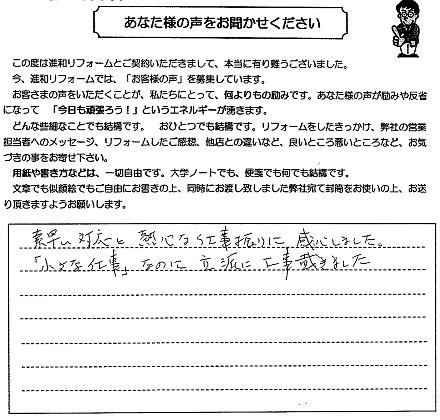 あなた様の声をお聞かせください
この度は進和リフォームとご契約いただきまして、本当に有り難うございました。
今、進和リフォームでは、「お客様の声」を募集しています。
お客さまの声をいただくことが、私たちにとって、何よりもの励みです。あなた様の声が励みや反省
になって　「今日も頑張ろう！」というエネルギーが湧きます。
どんな些細なことでも結構です。　おひとつでも結構です。リフォームをしたきっかけ、弊社の営業
担当者へのメッセージ、リフォームしたご感想、他店との違いなど、良いところ悪いところなど、お気
づきの事をお寄せ下さい。
用紙や書き方などは、一切自由です。大学ノートでも、便箋でも何でも結構です。
文章でも似顔絵でもご自由にお書きの上、同時にお渡し致しました弊社宛て封筒をお使いの上、お送
り頂きますようお願いします。
素早い対応と熱心な仕事振りに感心しました。
「小さな仕事」なのに立派に工事戴きました